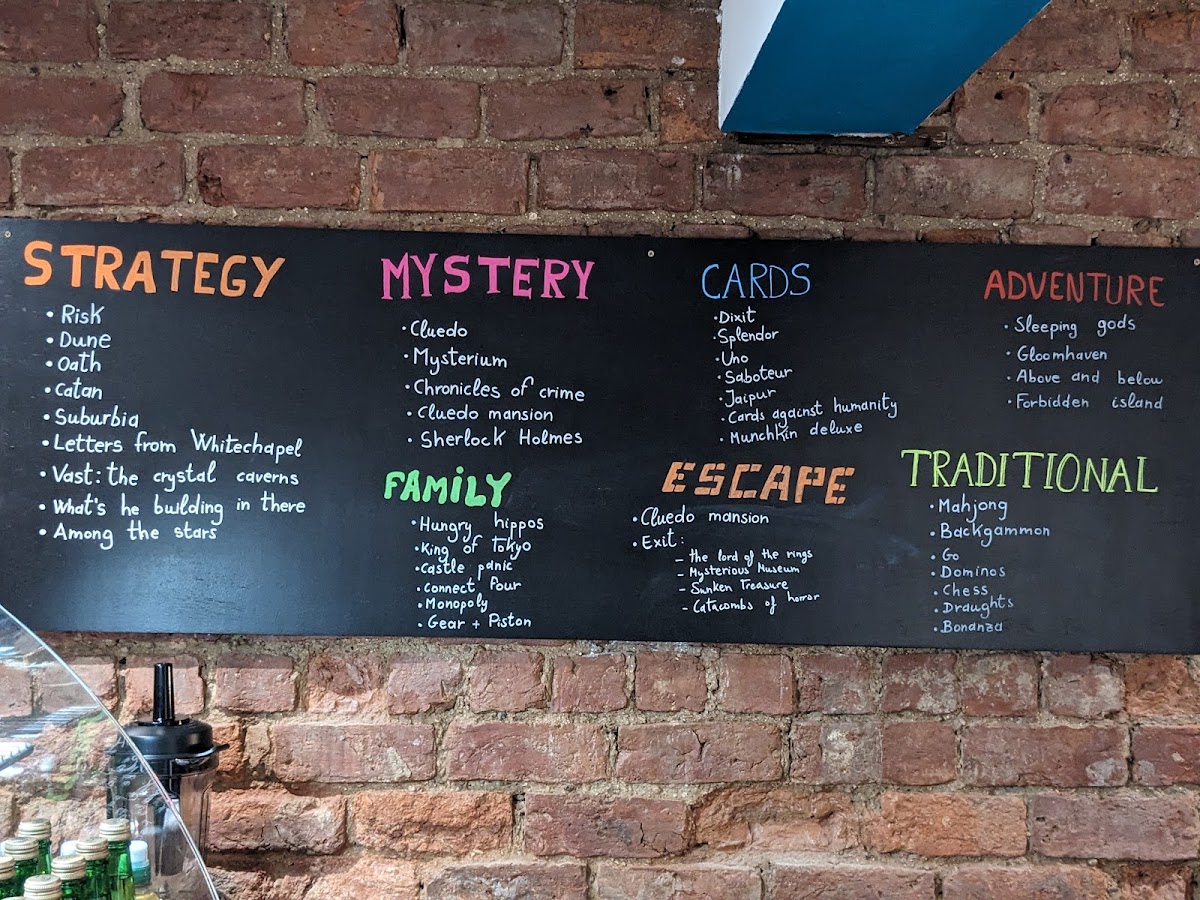 STRATEGY
• Risk
• Dune
• Oath
• Catan
• Suburbia
• Letters from Whitechapel
• Vast: the crystal caverns
• What's he building in there
• Among the stars
MYSTERY
• Cluedo
• Mysterium
• Chronicles of crime
• Cluedo mansion
• Sherlock Holmes
FAMILY
• Hungry hippos
• King of Tokyo
• Castle panic
• Connect Four
• Monopoly
• Gear + Piston
CARDS
• Dixit
• Splendor
• Uno
• Saboteur
• Jaipur
• Cards against humanity
• Munchkin deluxe
ESCAPE
• Cluedo mansion
• Exit:
– The lord of the rings
– Mysterious Museum
– Sunken Treasure
– Catacombs of horror
ADVENTURE
• Sleeping gods
• Gloomhaven
• Above and below
• Forbidden island
TRADITIONAL
• Mahjong
• Backgammon
• Go
• Dominos
• Chess
• Draughts
• Bonanza